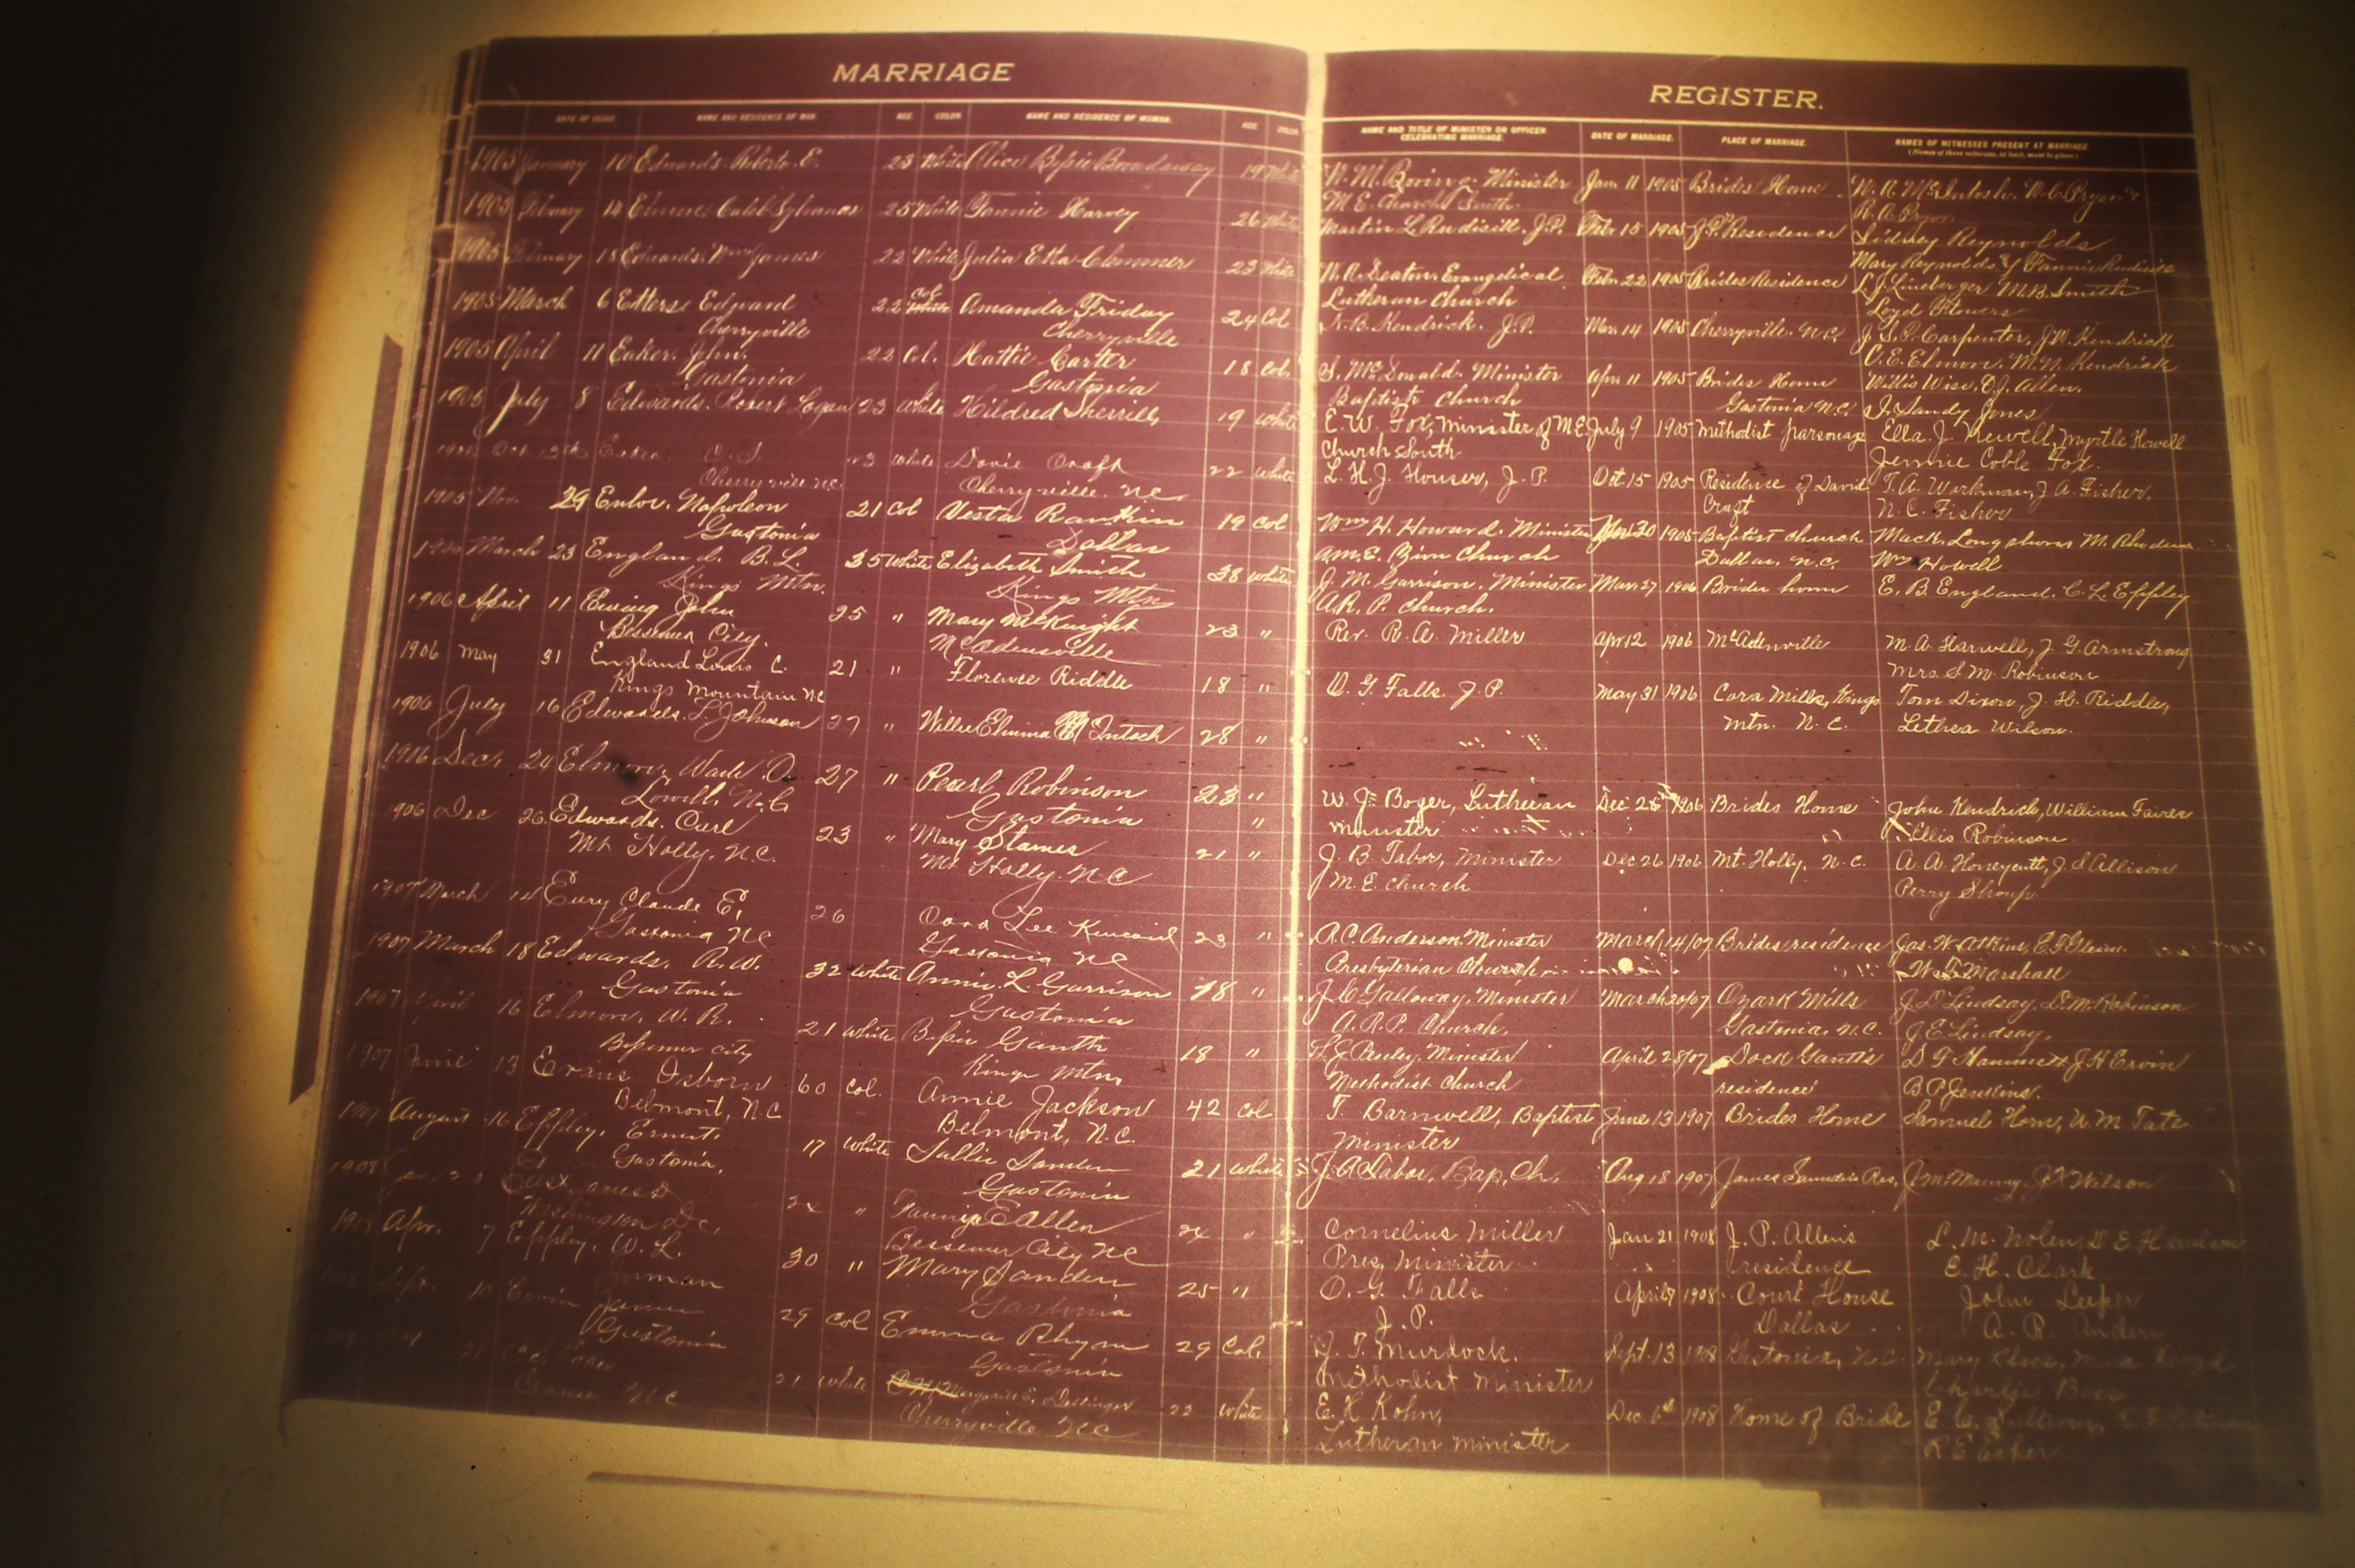 MARRIAGE
REGISTER.
DATE OF ISSUE. NAME AND RESIDENCE OF MAN. AGE. COLOR. NAME AND RESIDENCE OF WOMAN. AGE. COLOR.
NAME AND TITLE OF MINISTER OR OFFICER CELEBRATING MARRIAGE. DATE OF MARRIAGE. PLACE OF MARRIAGE. NAMES OF WITNESSES PRESENT AT MARRIAGE.
(Names of three witnesses, at least, must be given.)
1905 January 10 Edwards Roberts E. 23 White Alice Bessie Broadaway 19 White
1905 February 14 Elmore Caleb Sylvanus 25 White Fannie Harvey 26 White
1905 February 18 Edwards Wm James 22 White Julia Etta Clemmer 23 White
1905 March 6 Etters Edward 22 Col Amanda Friday 24 Col
Cherryville Cherryville
1905 April 11 Eaker, John. 22 Col. Hattie Carter 18 Col.
Gastonia Gastonia
1905 July 8 Edwards, Robert Logan 23 White Hildred Sherrill 19 White
Oct 13th Eaker C. S. 23 White Dovie Craft 22 White
Cherryville N.C. Cherryville, N.C.
1905 Nov. 29 Enloe, Napoleon 21 Col Vesta Rankin 19 Col
Gastonia Dallas
1906 March 23 England. B. L. 35 White Elizabeth Smith 38 White
Kings Mtn. Kings Mtn
1906 April 11 Ewing John 25 " Mary McKnight 23 "
Bessemer City. McAdensville
1906 May 31 England Louis C. 21 " Florence Riddle 18 "
Kings Mountain N.C
1906 July 16 Edwards. L. Johnson 27 " Willie Elmina McIntosh 28 "
1906 Dec. 24 Elmore, Wade D. 27 " Pearl Robinson 23 "
Lowell, N.C. Gastonia "
1906 Dec 26 Edwards. Carl 23 " Mary Starnes 21 "
Mt Holly, N.C. Mt Holly. N.C
1907 March 14 Eury Claude E. 26 Cora Lee Kincaid 23 "
Gastonia NC Gastonia NC
1907 March 18 Edwards, R. W. 32 White Annie L. Garrison 18 "
Gastonia Gastonia
1907 April 16 Elmore, W. R. 21 White Bessie Gantt 18 "
Bessemer City Kings Mtn
1907 June 13 Evans Osborn 60 Col. Annie Jackson 42 Col
Belmont, N.C Belmont, N.C.
1907 August 16 Eppley, Ernest. 17 White Sallie Sanders 21 White
Gastonia, Gastonia
1908 Jan East James D 24 " Fannie E Allen 24 "
Washington D.C. Bessemer City NC
1908 Apr. 7 Eppley, W. L. 30 " Mary Sanders 25 "
Gastonia
Sept. 10 Ervin James 29 Col Emma Rhyne 29 Col.
Gastonia Gastonia
21 White Margaret E. Dellinger 22 White
Crouse NC Cherryville NC
W. M. Boring. Minister Jan 11 1905 Brides Home W. R. McIntosh. W. C. Pryor &
M. E. Church South. R. A. Pryor
Martin L. Rudisill. J.P. Feb. 15 1905 J.P. Residence Sidney Reynolds
Mary Reynolds & Fannie Rudisill
W. R. Deaton. Evangelical Feb. 22 1905 Brides Residence L. J. Lineberger M. B. Smith
Lutheran Church Loyd Flowers
Kendrick. J.P. Mar. 14 1905 Cherryville. N.C. J. S. P. Carpenter, J. W. Kendrick
C. E. Elmore. M. N. Kendrick
S. McDonald. Minister Apr. 11 1905 Brides Home Willis Wise, D. J. Allen.
Baptist Church Gastonia N.C. J. Sandy Jones
E. W. Fox, Minister of M.E. July 9 1905 Methodist parsonage Ella. J. Newell, Myrtle Howell
Church South Jennie Coble Fox.
L. H. J. Houser, J. P. Oct. 15 1905 Residence of David T. A. Workman, J. A. Fisher,
Craft N. C. Fisher
Wm H. Howard. Minister Nov 30 1905 Baptist Church
A.M.E. Zion Church Dallas, N.C. Wm Howell
J. M. Garrison. Minister Mar. 27 1906 Brides home E. B. England. C. L. Eppley
A.R.P. Church.
Rev. R. A. Miller Apr 12 1906 McAdenville M. A. Harwell, J. G. Armstrong
Mrs. S. M. Robinson
O. G. Falls J.P. May 31 1906 Cora Mills, Kings Tom Dixon, J. H. Riddle,
Mtn. N. C. Lethea Wilson.
W. J. Boger, Lutheran Dec 25 1906 Brides Home John Kendrick, William Faires
minister Ellis Robinson.
J. B. Tabor, minister Dec 26 1906 Mt. Holly, N.C. A. A. Honeycutt, J. S Allison
M. E. church Perry Shoup
R. C. Anderson Minister March 14/07 Brides residence Jas. W. Atkins, E. F. Glenn.
Presbyterian Church Marshall
J. C Galloway. Minister March 20/07 Ozark Mills J. D Lindsay. D. M. Robinson
A. R. P. Church. Gastonia, N.C. J. E. Lindsay.
Penley. Minister April 28/07 Dock Gantt's D F Hammett J H Ervin
Methodist Church residence B. P. Jenkins.
T. Barnwell, Baptist June 13 1907 Brides Home Samuel Horn, U. M. Tate
Minister
J. A. Tabor, Bap. Ch. Aug 18 1907 James Saunders Res, J. M. Mauney, J. F. Wilson
Cornelius Miller Jan 21 1908 J. P. Allens L. M. Nolen, D E Hendson
Pres, Minister residence E. H. Clark
O. G. Falls April 7 1908 Court House John Leeper
J. P. Dallas A. R. Anders
J. T. Murdock, Sept. 13 1908 Gastonia, N.C.
Methodist Minister
E. H Kohn, Dec. 6th 1908 Home of Bride
Lutheran minister R E Eaker